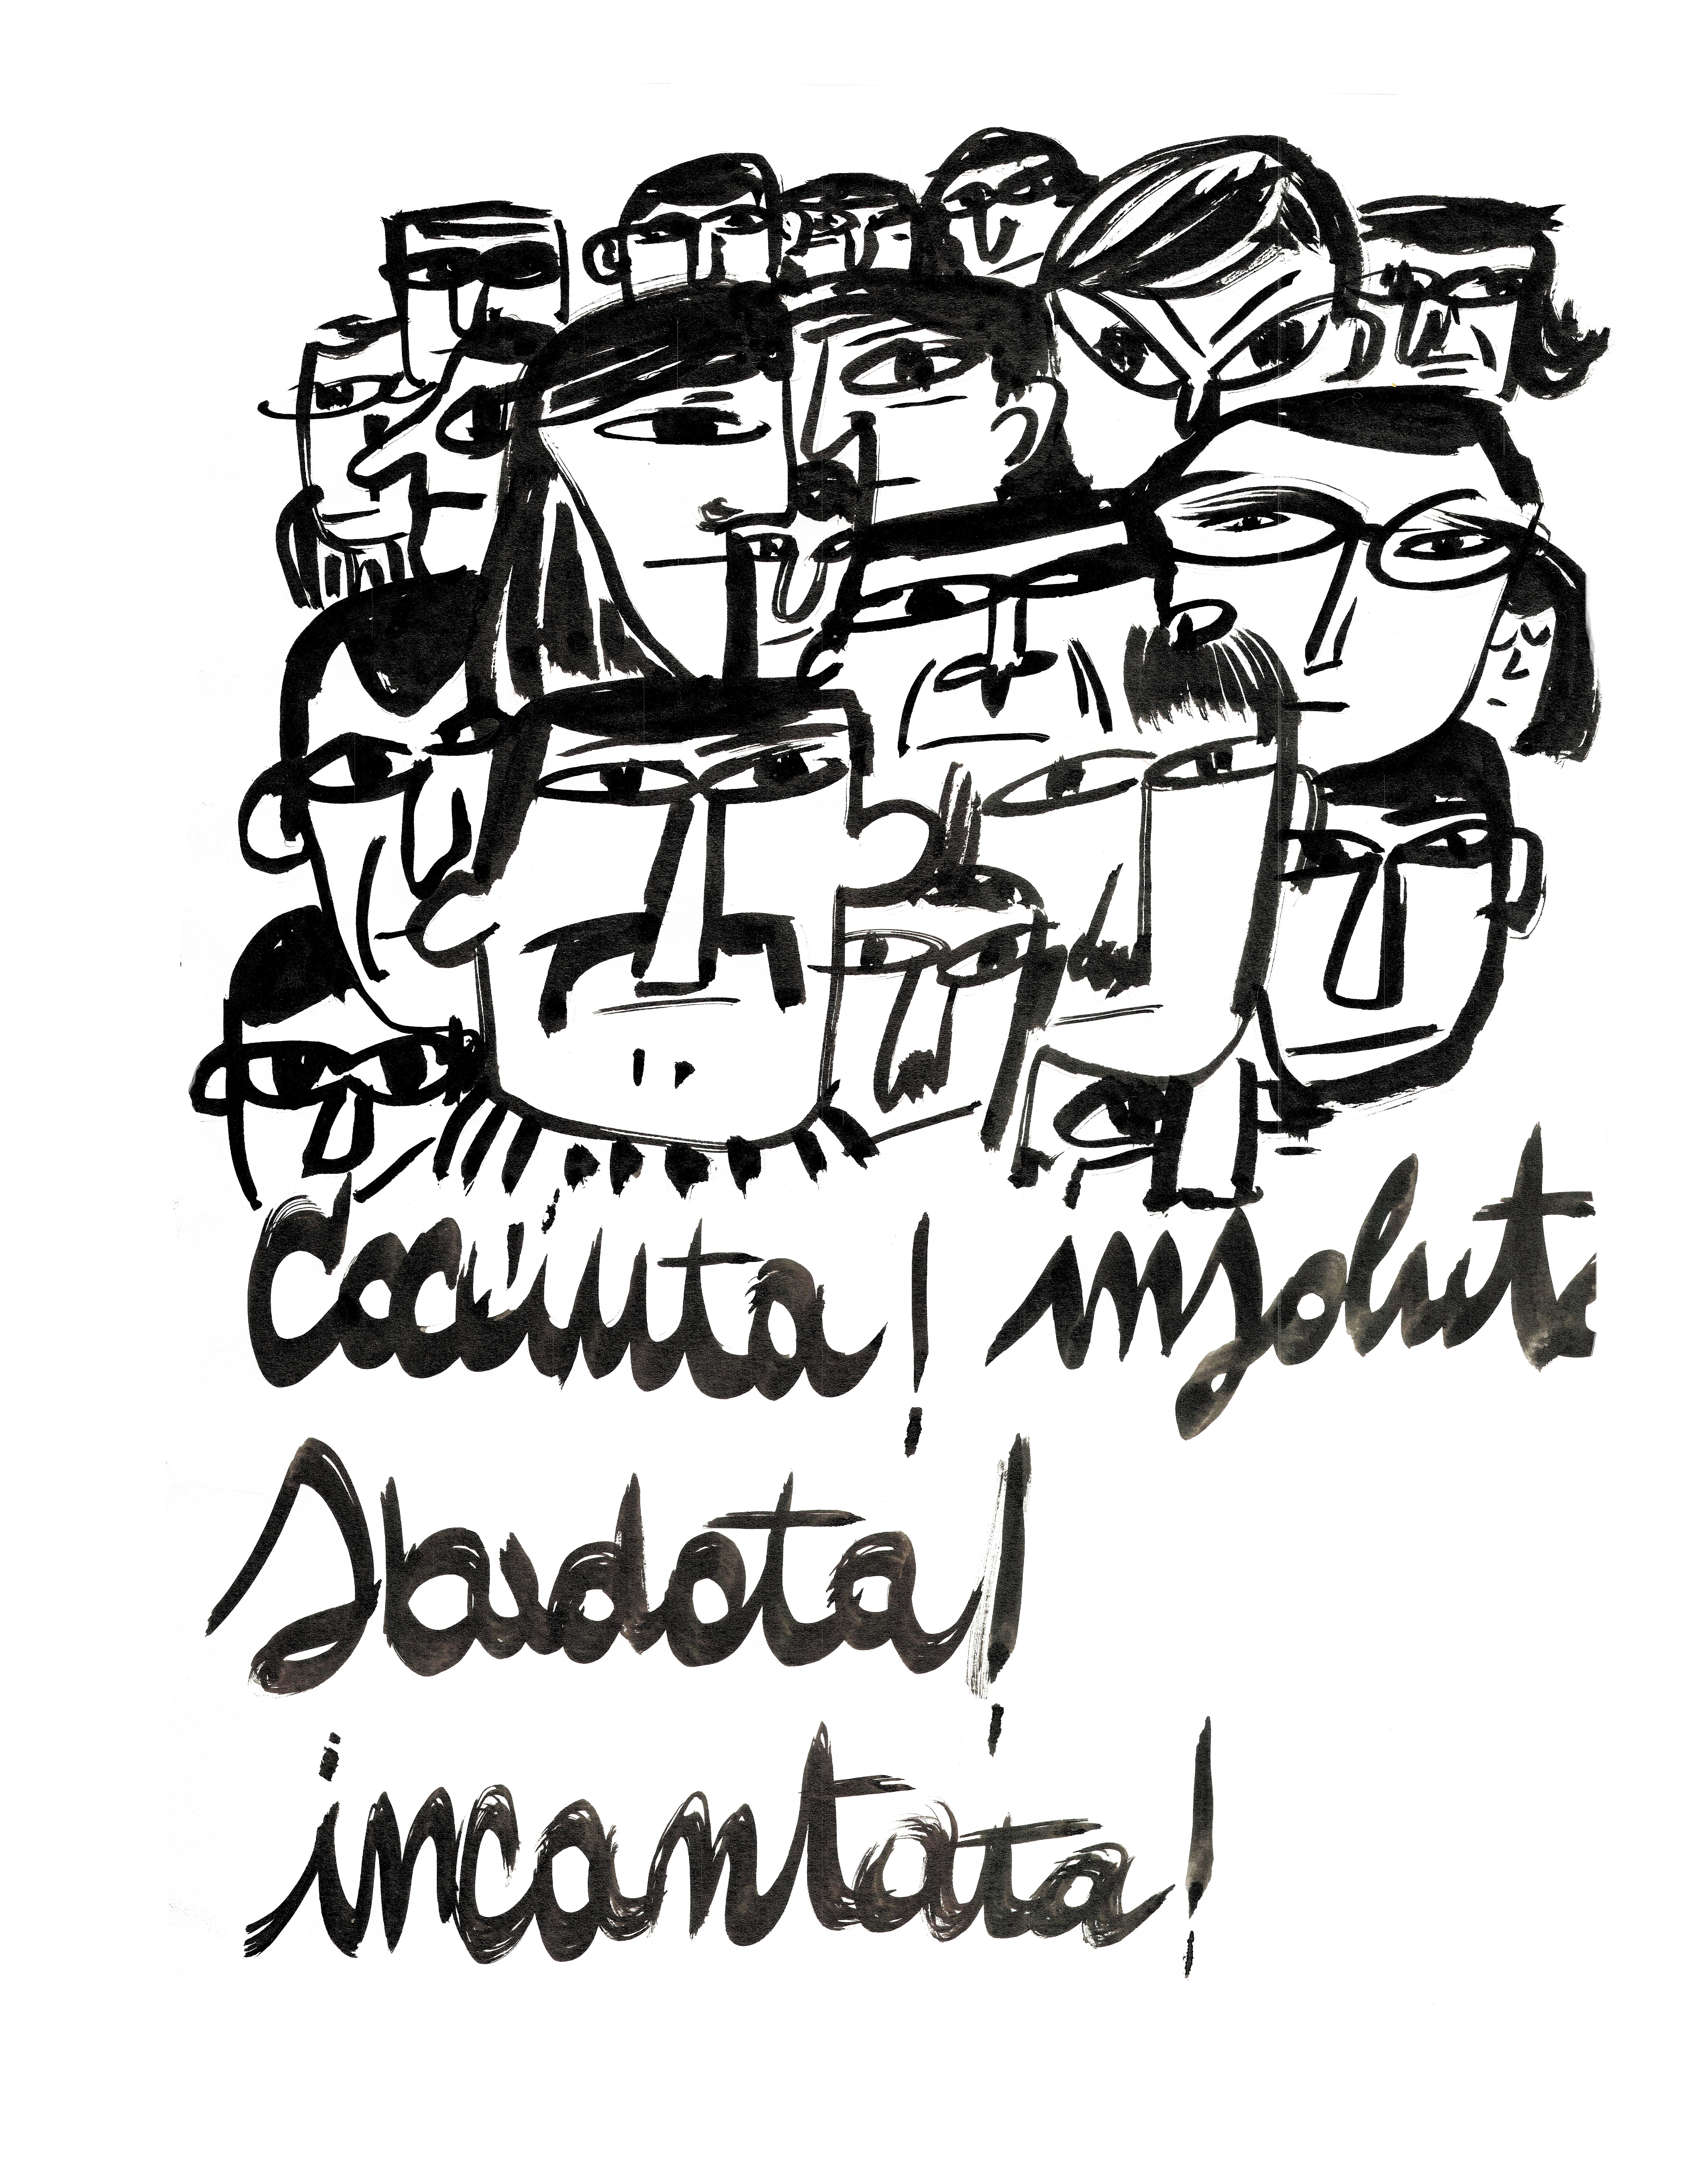 Cocciuta! insoluta
Sbadata!
incantata!